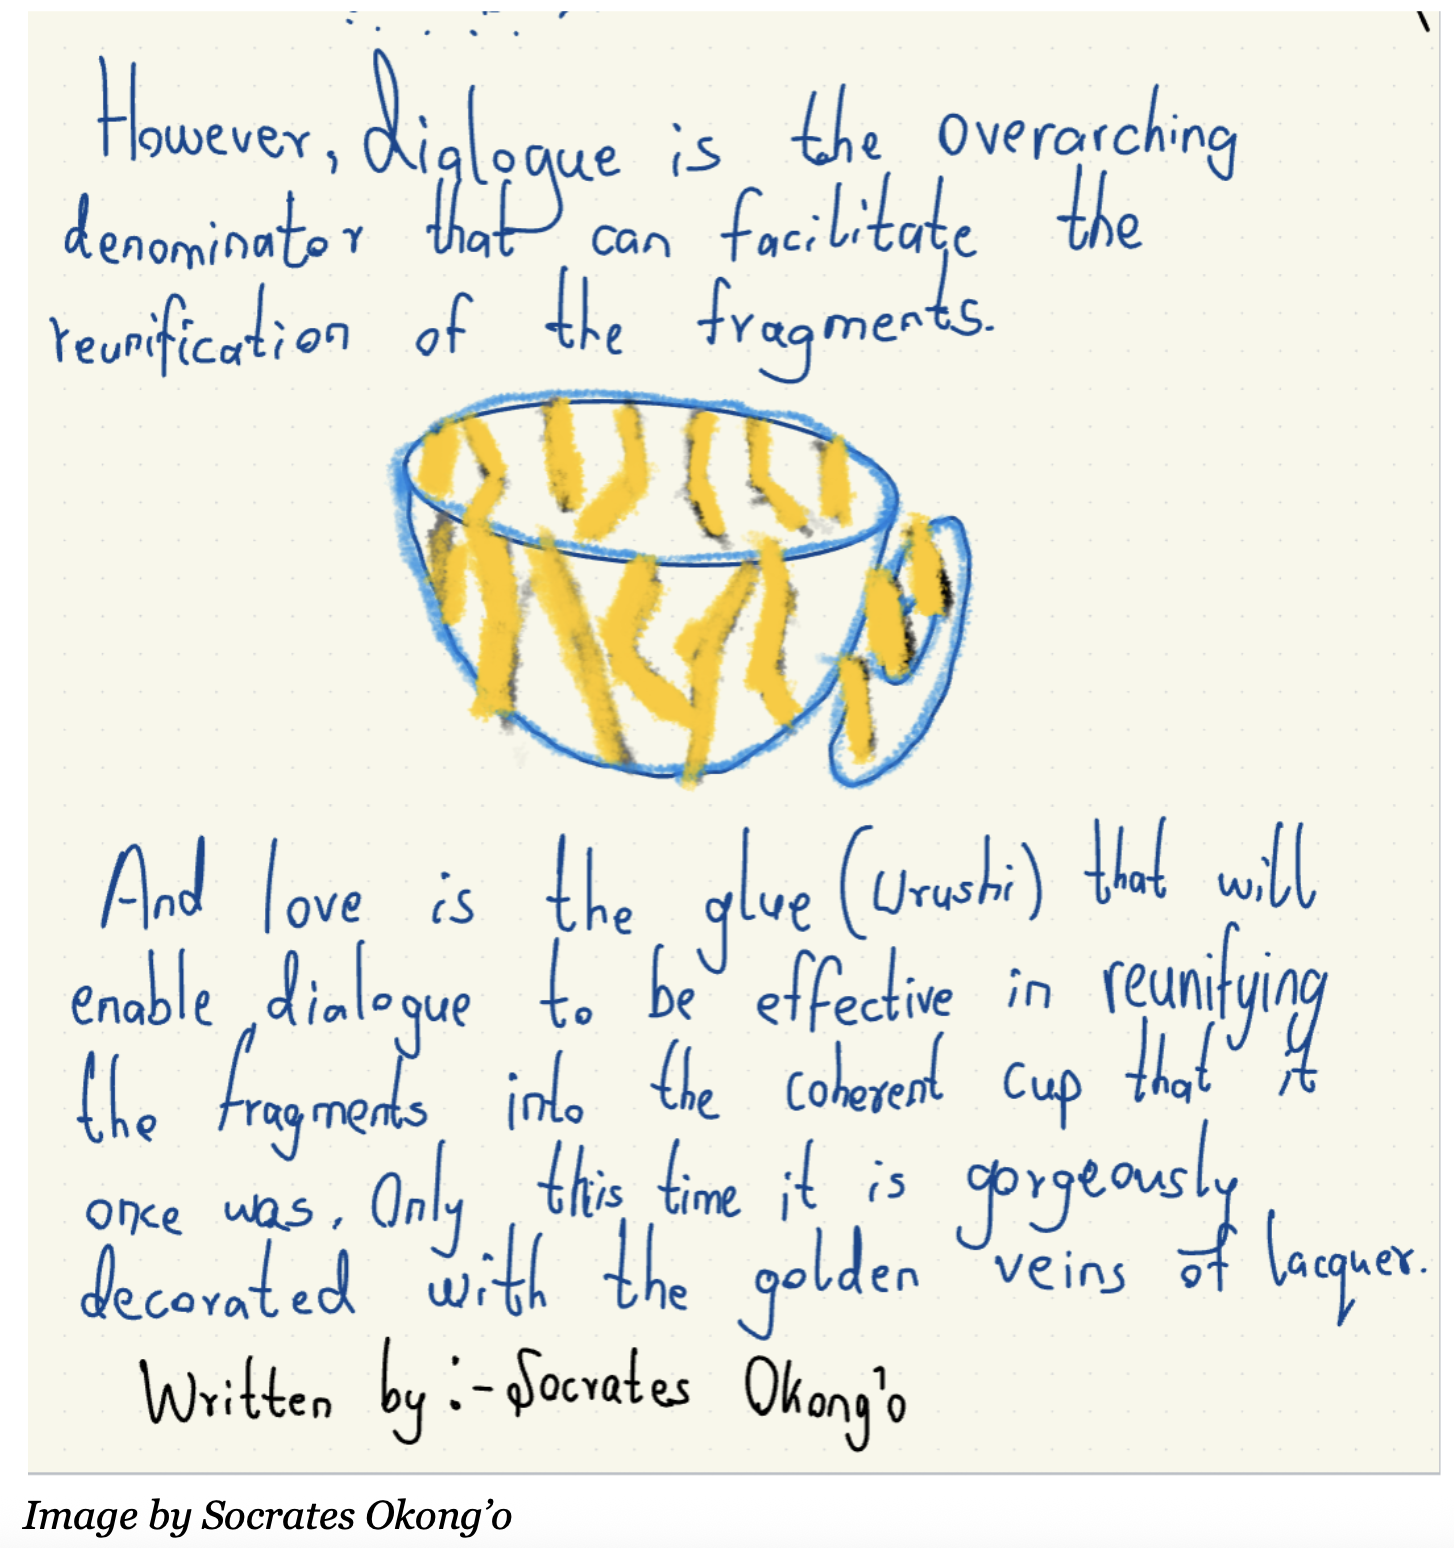 However, dialogue is the overarching
denominator that can facilitate the
reunification of the fragments.
And love is the glue (Urushi) that will
enable dialogue to be effective in reunifying
the fragments into the coherent cup that it
once was. Only this time it is gorgeously
decorated with the golden veins of lacquer.
Written by:- Socrates Okong'o
Image by Socrates Okong’o